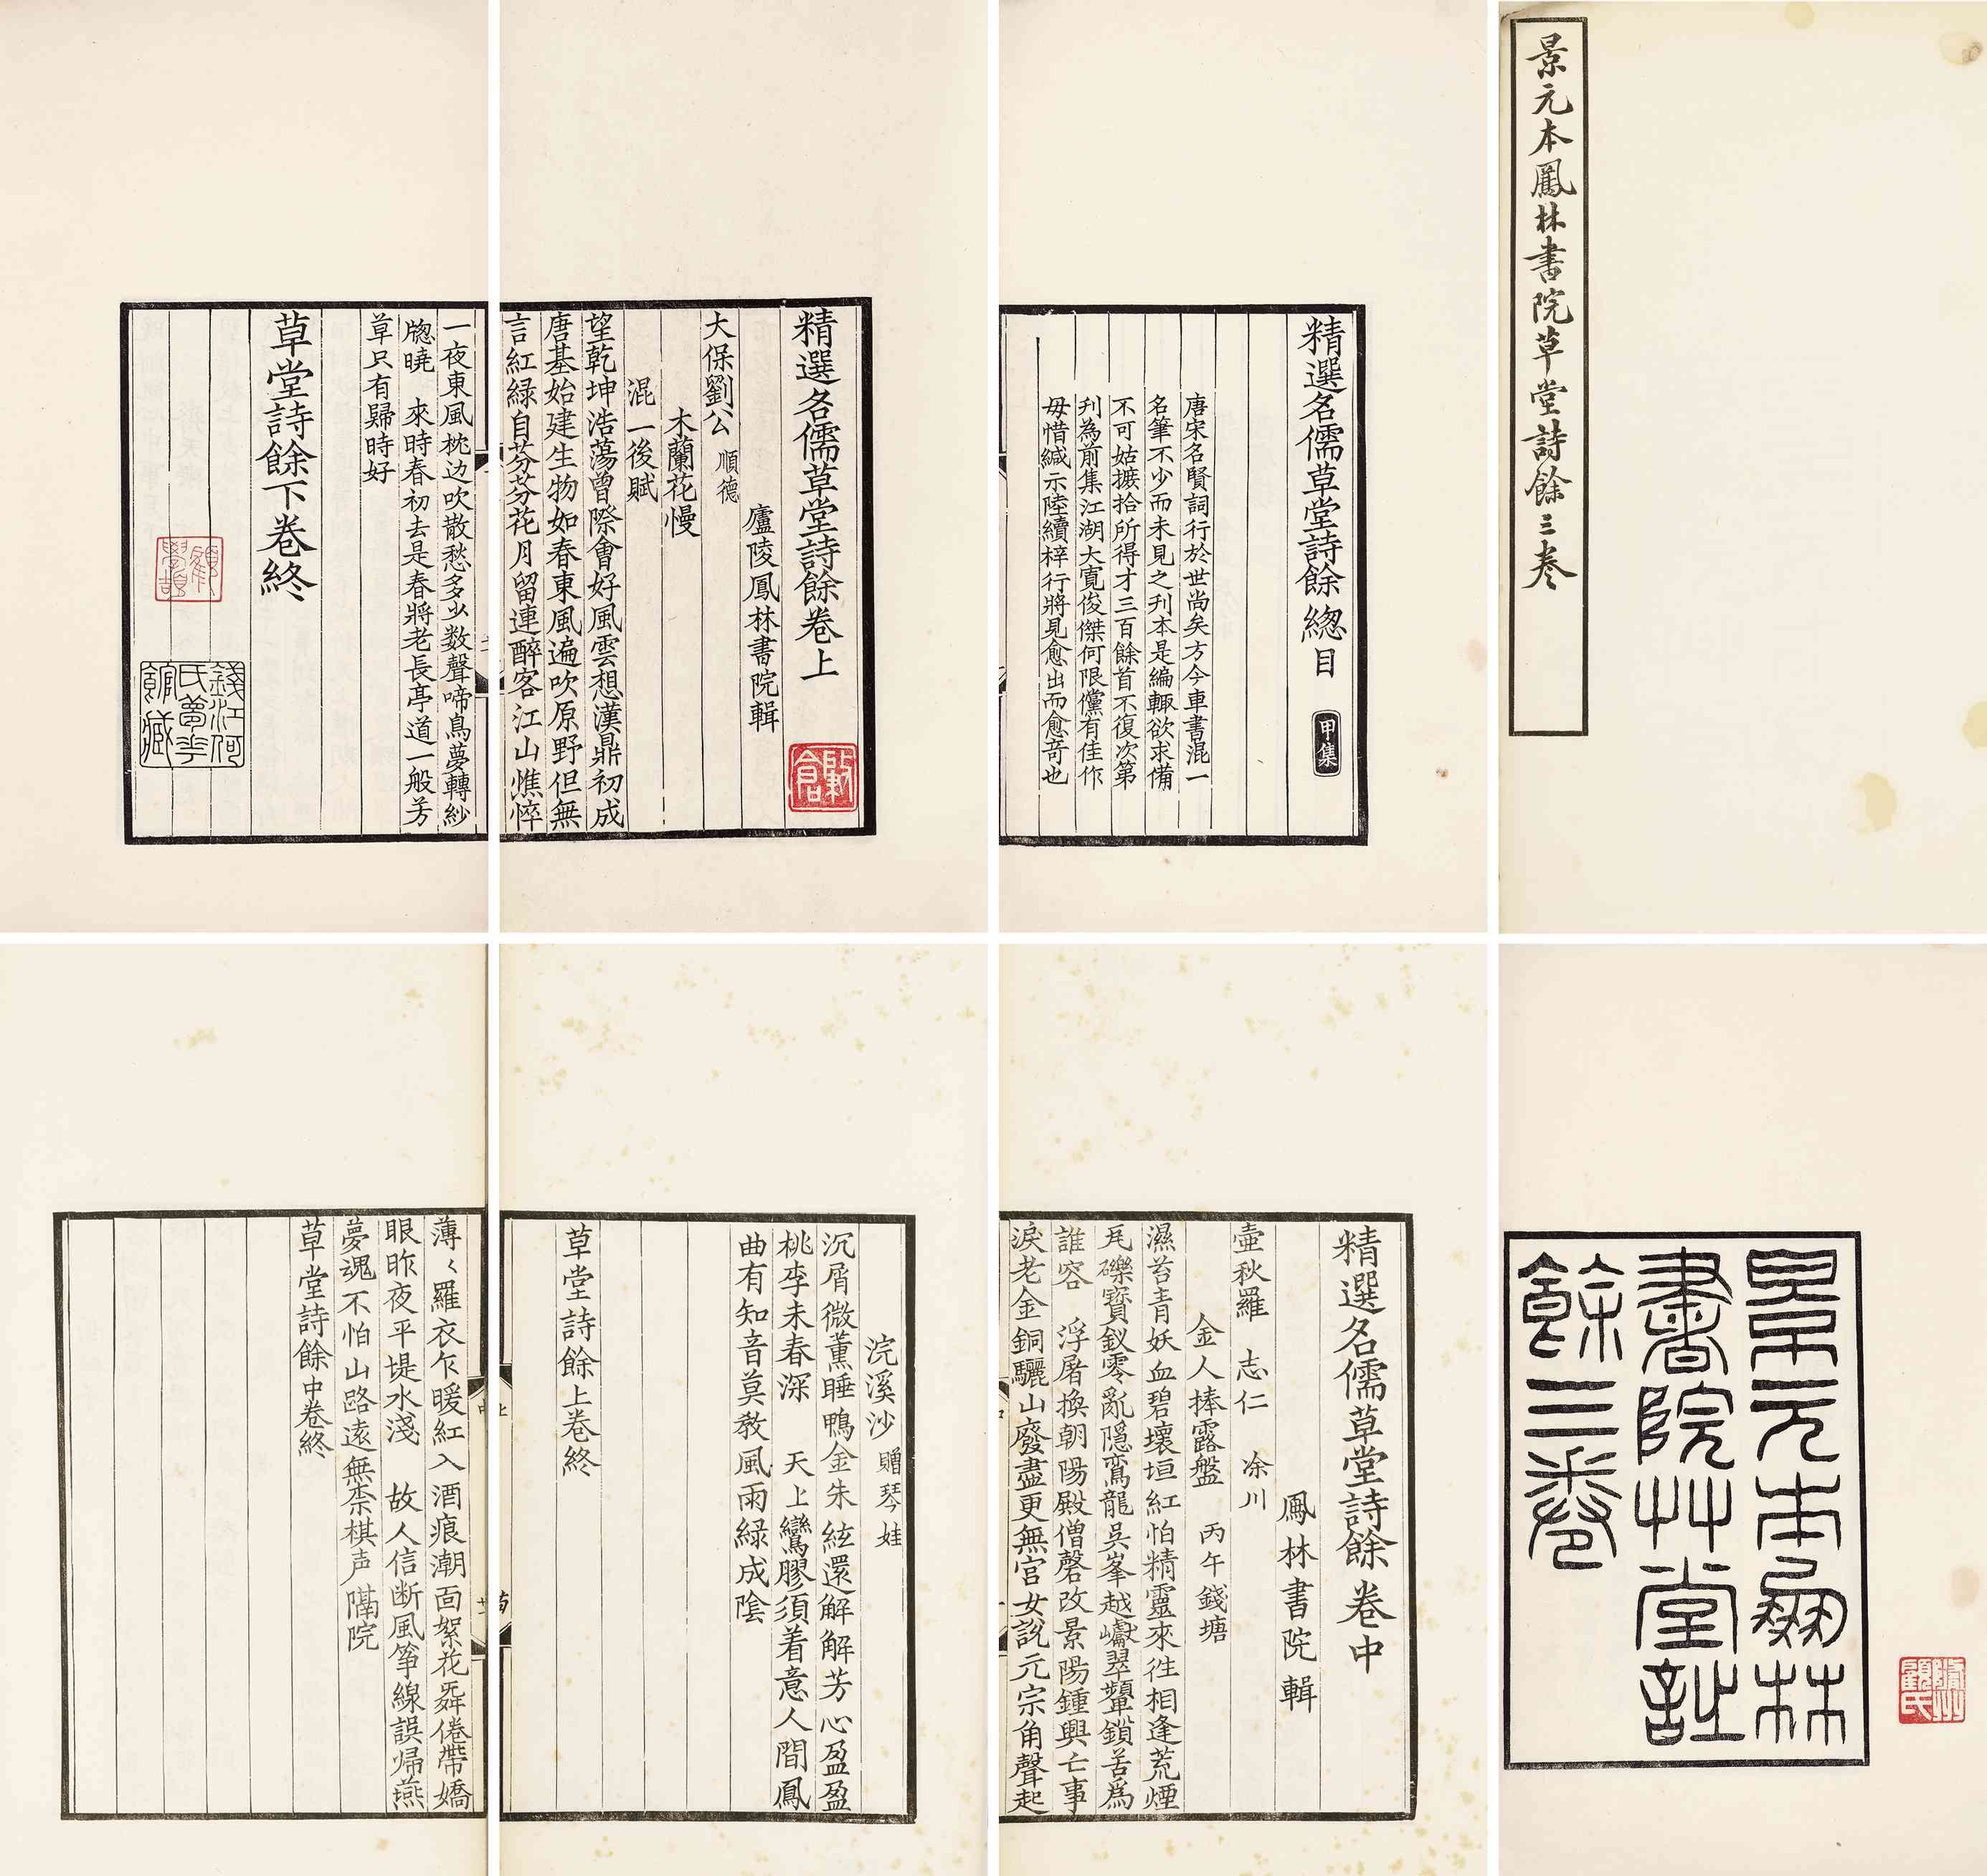 景元本鳳林書院草堂詩餘三卷
精選名儒草堂詩餘緫目
甲集
唐宋名賢詞行於世尚矣方今車書混一
名筆不少而未見之刊本是編輙欲求備
不可姑摭拾所得才三百餘首不復次第
刊為前集江湖大寬俊傑何限儻有佳作
毋惜緘示陸續梓行將見愈出而愈奇也
精選名儒草堂詩餘卷上
廬陵鳳林書院輯
大保劉公 順德
木蘭花慢
混一後賦
望乾坤浩蕩曾際會好風雲想漢鼎初成
唐基始建生物如春東風遍吹原野但無
言紅緑自芬芬花月留連醉客江山憔悴
一夜東風枕边吹散愁多少数聲啼鳥夢轉紗
牕曉 來時春初去是春將老長亭道一般芳
草只有歸時好
草堂詩餘下卷終
錢江何氏夢華館藏
景元本鳳林
書院艸堂詩
餘三卷
顧氏
精選名儒草堂詩餘卷中
鳳林書院輯
壷秋羅 志仁 涂川
金人捧露盤 丙午錢塘
濕苔青妖血碧壞垣紅怕精靈來徃相逢荒煙
瓦礫寳釵零亂隠鸞龍吳峯越巘翠顰鎖苦爲
誰容 浮屠換朝陽殿僧磬改景陽鍾興亡事
淚老金銅驪山廢盡更無宫女説元宗角聲起
浣溪沙 贈琴娃
沉屑微薰睡鴨金朱絃還解解芳心盈盈
桃李未春深 天上鸞膠須着意人間鳳
曲有知音莫教風雨緑成陰
草堂詩餘上卷終
薄〻羅衣乍暖紅入酒痕潮面絮花舜倦帶嬌
眼昨夜平堤水淺 故人信断風筝線誤歸燕
夢魂不怕山路遠無柰棋声隔院
草堂詩餘中卷終